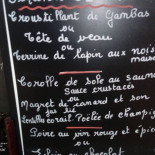 Croustillant de Gambas
ou
Tête de veau
ou
Terrine de lapin aux noi
maison
Corolle de sole au saum
Sauce crustacés
ou
Magret de canard et son
corail Poêlée de champig
Poire au pin rouge et épic
ou
au chocolat